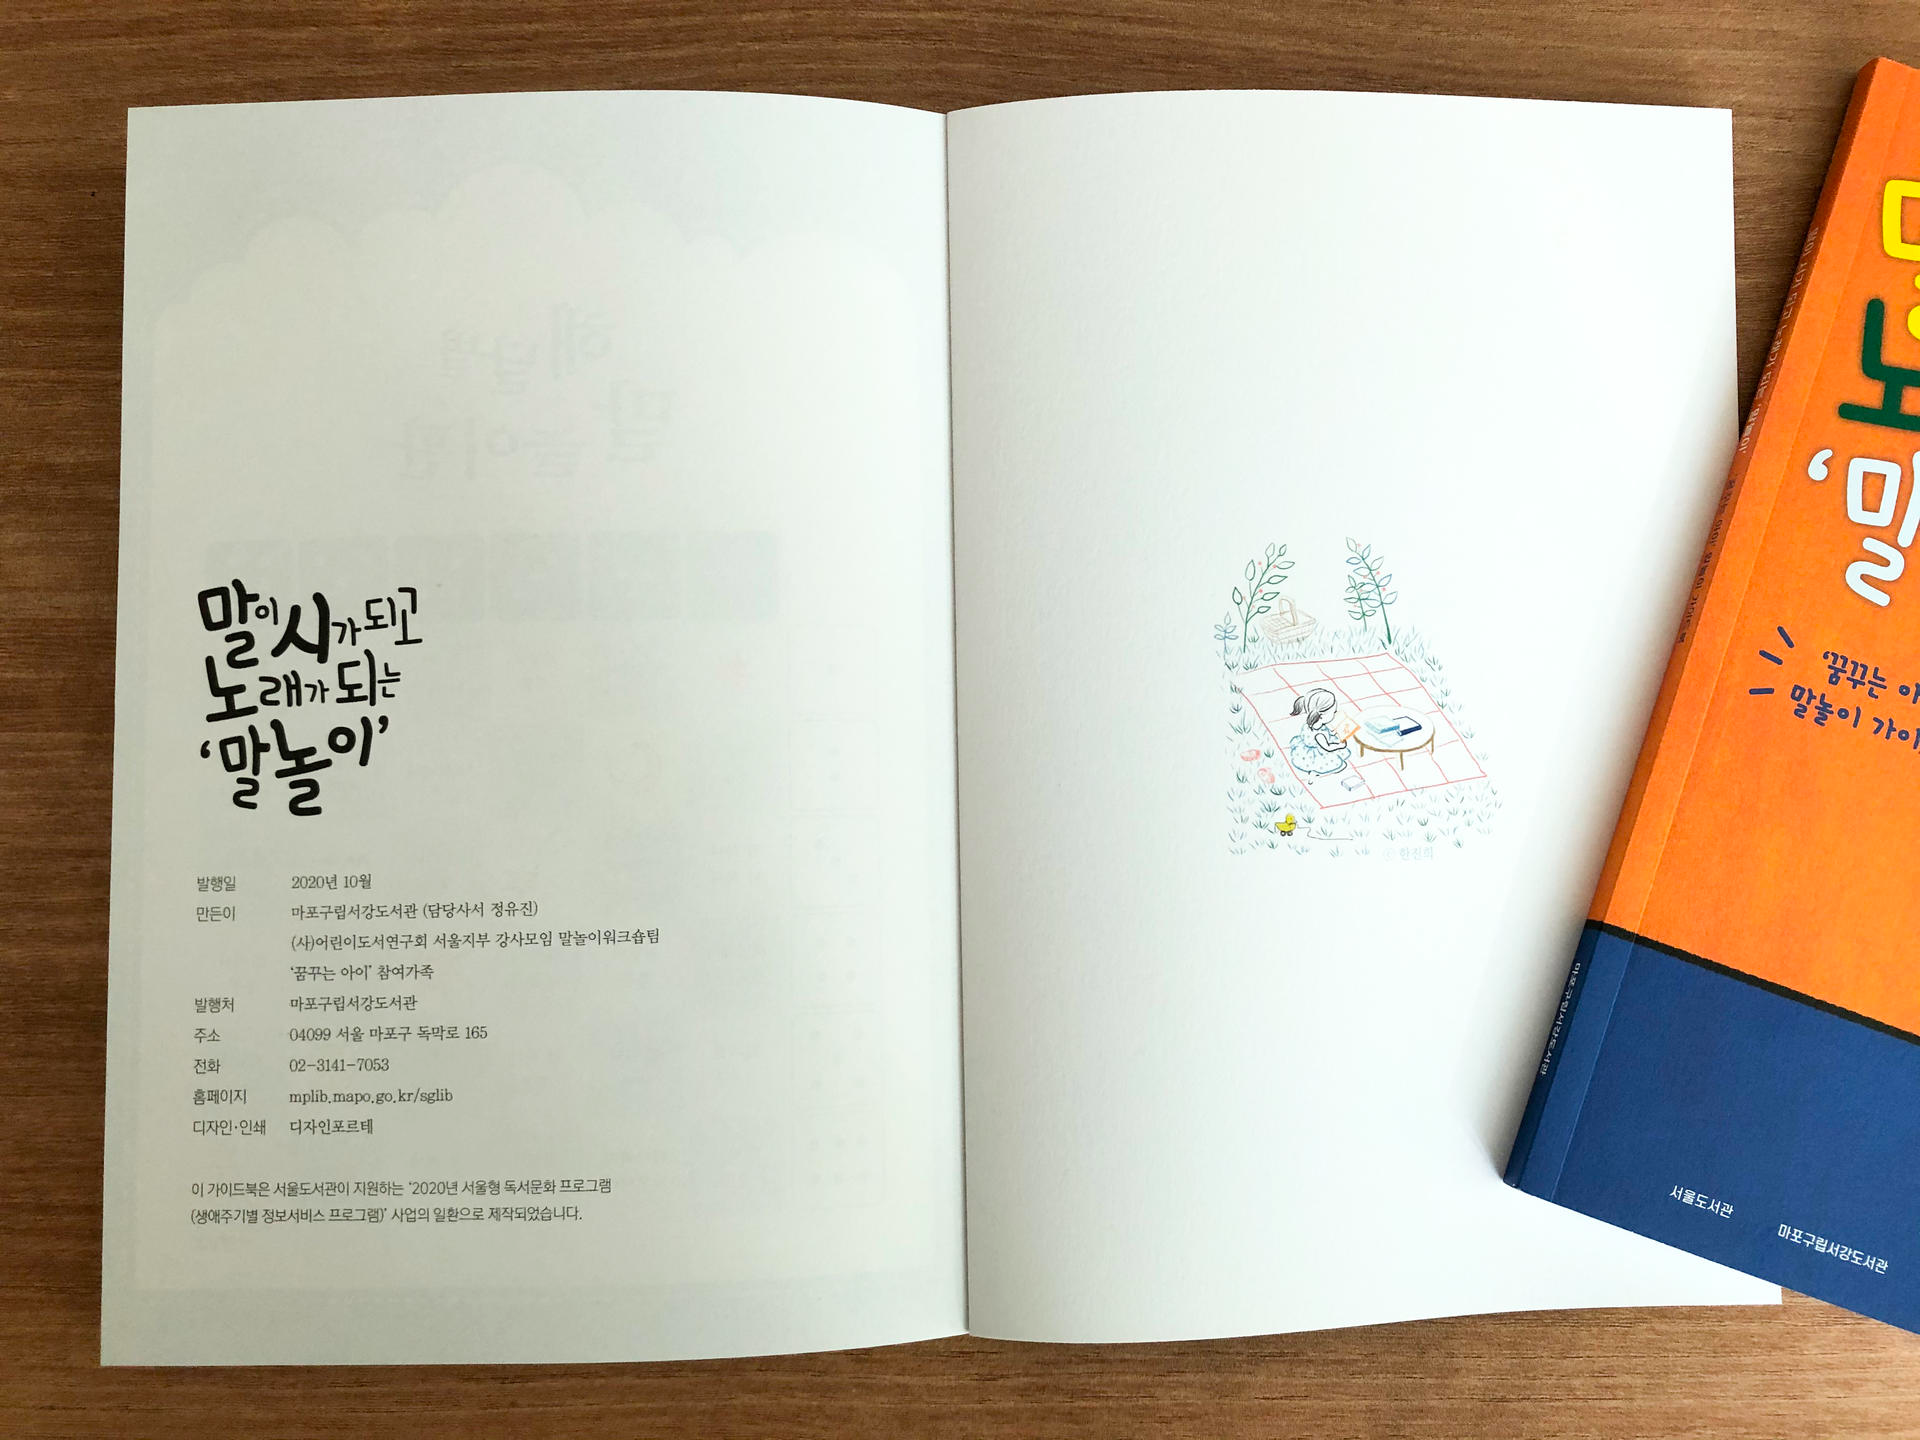 말이 시가 되고
노래가 되는
‘말놀이’
발행일 2020년 10월
만든이 마포구립서강도서관 (담당사서 정유진)
(사)어린이도서연구회 서울지부 강사모임 말놀이워크숍팀
‘꿈꾸는 아이’ 참여가족
발행처 마포구립서강도서관
주소 04099 서울 마포구 독막로 165
전화 02-3141-7053
홈페이지 mplib.mapo.go.kr/sglib
디자인·인쇄 디자인포르테
이 가이드북은 서울도서관이 지원하는 ‘2020년 서울형 독서문화 프로그램
(생애주기별 정보서비스 프로그램)’ 사업의 일환으로 제작되었습니다.
ⓒ 한진희
말이 시가 되고 노래가 되는 ‘말놀이’
‘꿈꾸는 아이’ 말놀이 가이드북
마포구립서강도서관
노
‘말
‘꿈꾸는 아
말놀이 가이
서울도서관
마포구립서강도서관